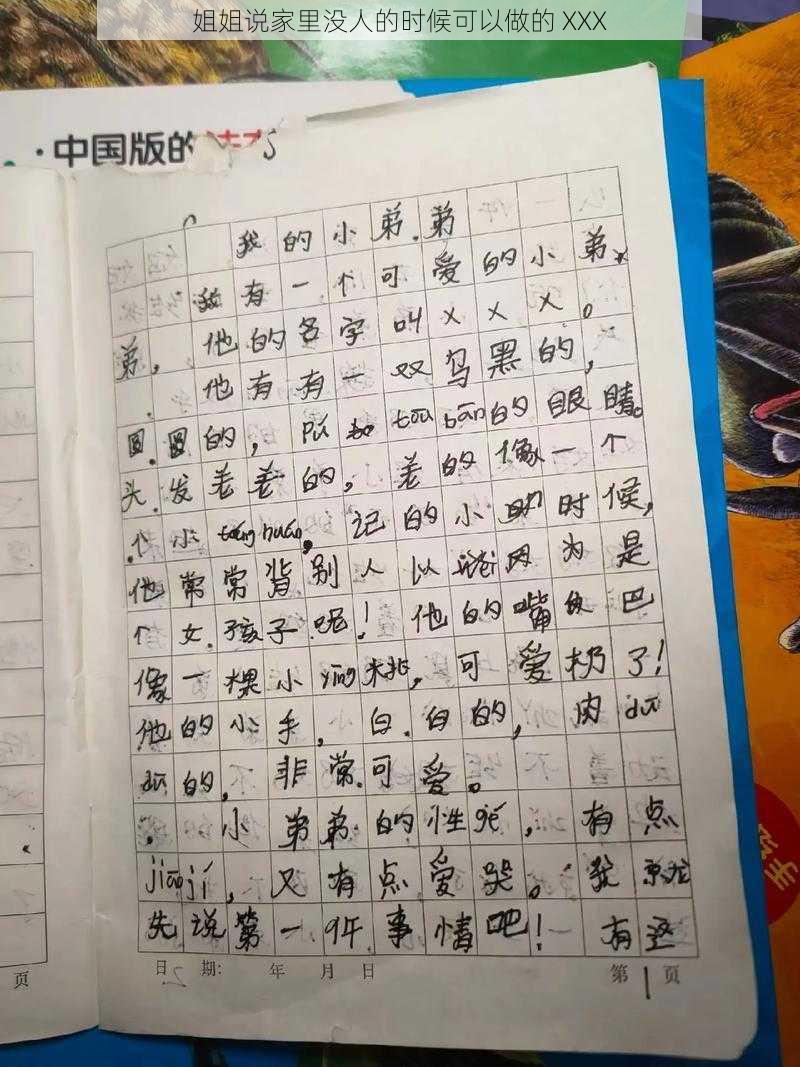 姐姐说家里没人的时候可以做的 XXX
中国版的
我的小弟弟
我有一个可爱的小弟
弟，他的名字叫xxx。
他有有一双乌黑的，
圆圆的， 的眼睛。
头发卷卷的，卷的像一个
个小 ，记的小 时候，
他常常背别人以 因为是
个女孩子呢！他的嘴 巴
像一棵小yīng桃，可爱 了！
他的小手，白白的，肉dū
dū的，非常可爱。
小弟弟的性gé，有点
jiāojí，又有点爱哭。我
先说第一件事情吧！有
日期： 年 月 日
第1页
页